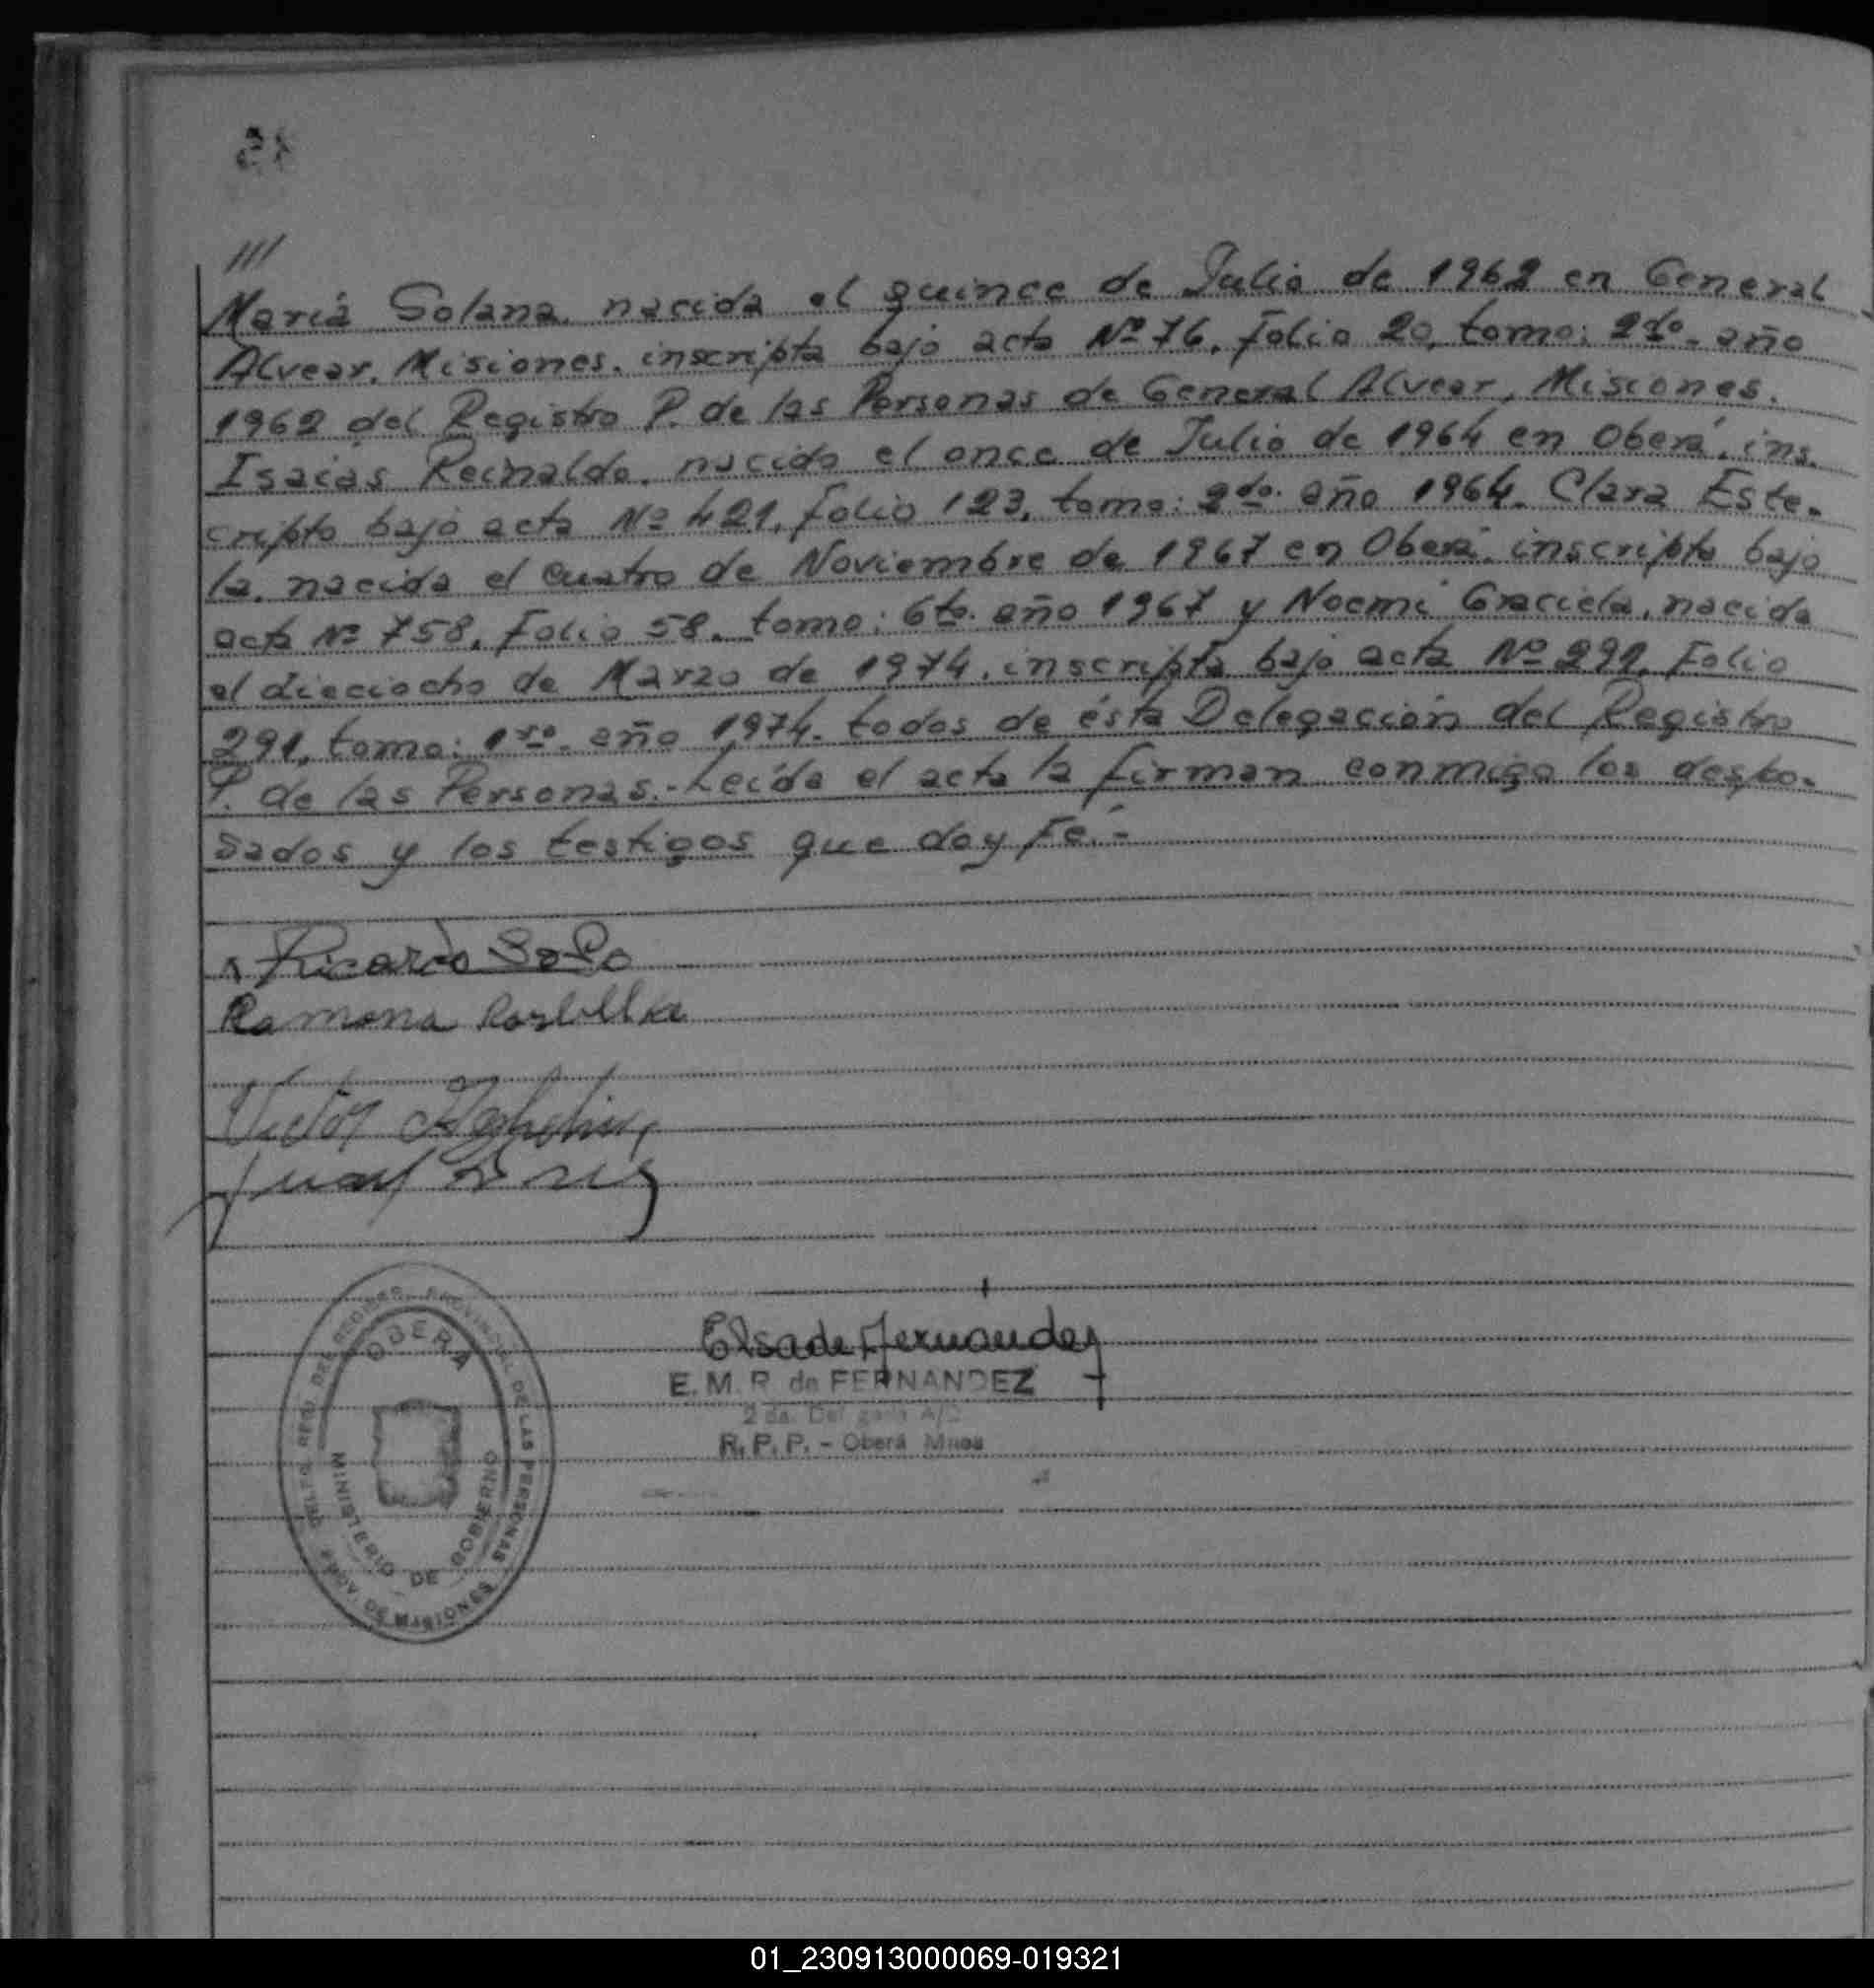 ///
María Solana, nacida el quince de Julio de 1962 en General
Alvear, Misiones. inscripta bajo acta Nº 76, Folio 20, tomo: 2do. año
1962 del Registro P. de las Personas de General Alvear, Misiones.
Isaías Reinaldo, nacido el once de Julio de 1964 en Oberá, ins.
cripto bajo acta Nº 421, folio 123, tomo: 2do. año 1964. Clara Este-
la, nacida el cuatro de Noviembre de 1967 en Oberá, inscripta bajo
acta Nº 758, Folio 58, tomo: 6to. año 1967 y Noemí Graciela, nacida
el dieciocho de Marzo de 1974, inscripta bajo acta Nº 291, Folio
291, tomo: 1ro. año 1974. todos de ésta Delegación del Registro
P. de las Personas.- Leída el acta la firman conmigo los despo-
sados y los testigos que doy Fé.-
Ricardo
Ramona
Victor
Juan
Elsa de Fernandez
E. M. R. de FERNANDEZ
2 da. A/C
R. P. P. - Oberá Mnes
OBERA
PROVINCIAL DE LAS PERSONAS
MINISTERIO DE GOBIERNO
DE MISIONES
01_230913000069-019321